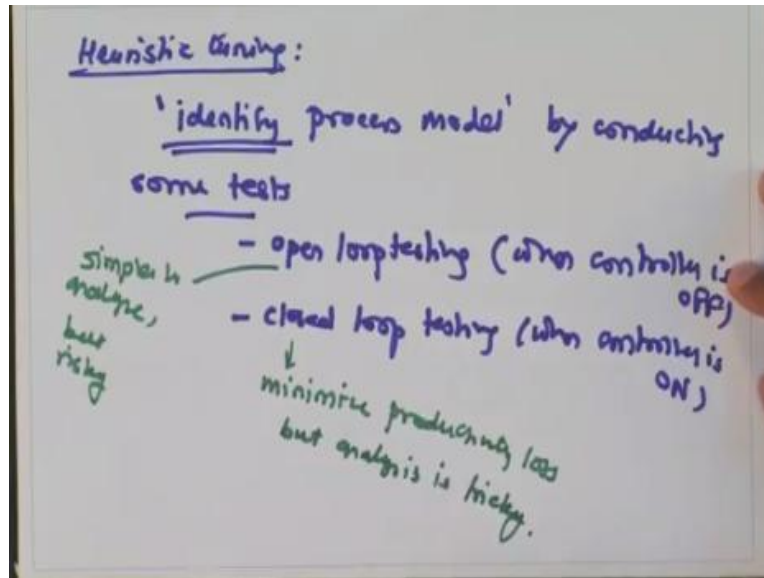 Heuristic tuning:
'identify process model' by conducting
some tests
- open loop testing (when controller is
OFF)
- closed loop testing (when controller is
ON)
simpler to
analyse,
but
risky
minimize productivity loss
but analysis is tricky.